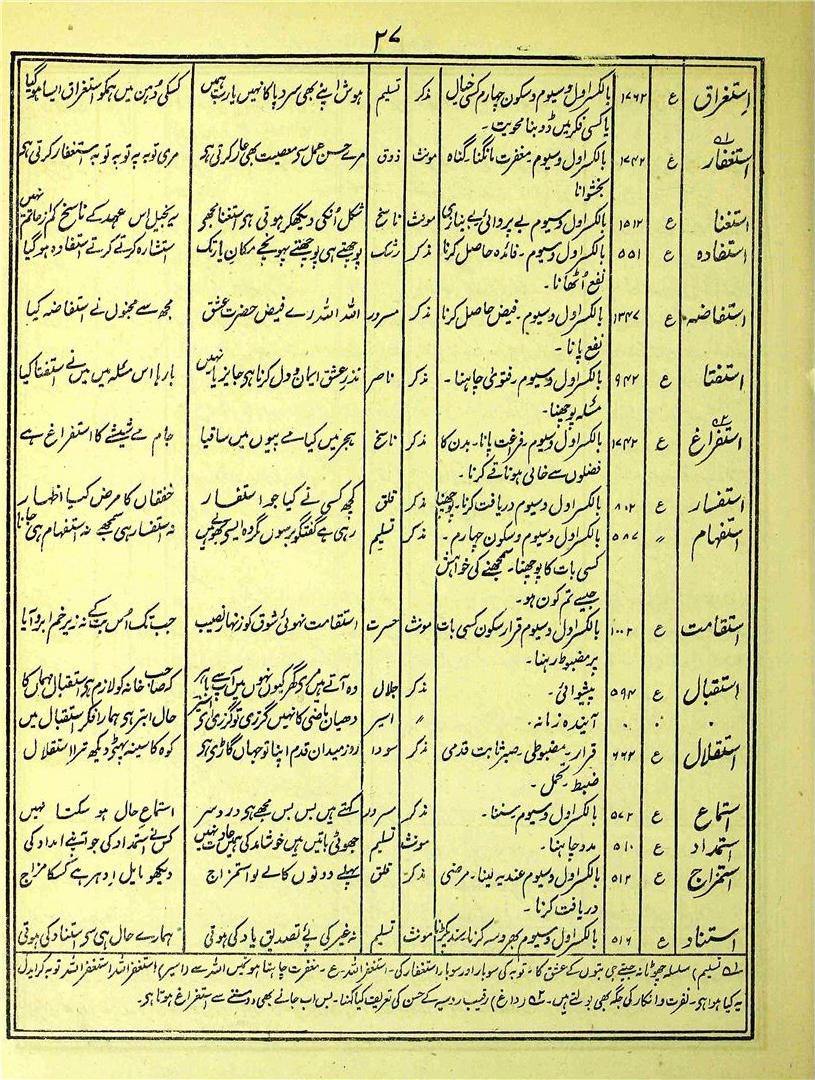 ۲۷
اِستغراق ع ۱۷۶۲ بالکسر اول و سیوم و سکون چہارم کسی خیال مذکر تسلیم ہوش اپنے بھی سر و پا کا نہیں یار ہمیں کسکی دُہن میں ہمکو استغراق ایسا ہو گیا
یا کسی فکر میں ڈوبنا محویت ۔
استغفار ع ۱۷۴۲ بالکسر اول و سیوم ۔ مغفرت مانگنا ۔ گناہ مونث ذوق مرے حسن عمل سے معصیت بھی عار کرتی ہو مری توبہ پہ توبہ توبہ استغفار کرتی ہو
بخشوانا
استغنا ع ۱۵۱۲ بالکسر اول و سیوم بے پروائی بے نیازی مونث ناسخ شکل اُنکی دیکھکر ہوتی ہو استغنا مجھو یہ بخیل اس عہد کے ناسخ کم از حاتم نہیں
استفادہ ع ۵۵۱ بالکسر اول و سیوم ۔ فائدہ حاصل کرنا مذکر رشک پوچھتے ہی پوچھتے پہونچے مکانِ یار تک استشارہ کرتے کرتے استفادہ ہو گیا
نفع اُٹھانا ۔
استفاضہ ع ۱۳۴۷ بالکسر اول و سیوم ۔ فیض حاصل کرنا مذکر مسرور اللہ اللہ رے فیض حضرت عشق مجھ سے مجنوں نے استفاضہ کیا
نفع پانا ۔
استفتا ع ۹۴۲ بالکسر اول و سیوم ۔ فتویٰ چاہنا ۔ مذکر ناصر نذرِ عشق ایمان و دل کرنا ہو جایز یا نہیں بارہا اس مسئلہ میں میں نے استفتا کیا
مسئلہ پوچھنا ۔
استفراغ ع ۱۷۴۲ بالکسر اول و سیوم ۔ فرغت پانا ۔ بدن کا مذکر ناسخ ہجر میں کیا مے پیوں میں ساقیا جام مے شیشے کا استفراغ ہے
فضلوں سے خالی ہونا قے کرنا ۔
استفسار ع ۸۰۲ بالکسر اول و سیوم دریافت کرنا ۔ پوچھنا مذکر قلق کچھ کسی نے کیا جو استفسار خفقان کا مرض کیا اظہار
استفہام 〃 ۵۸۷ بالکسر اول و سیوم و سکون چہارم ۔ مذکر تسلیم رہی ہے گفتگو برسوں مگر وہ ایسے نہ استفسار ہی سمجھے نہ استفہام ہی جانا
کسی بات کا پوچھنا ۔ سمجھنے کی خواہش
جیسے تم کون ہو ۔
استقامت ع ۱۰۰۲ بالکسر اول و سیوم قرار سکون کسی بات مونث حسرت استقامت نہوئی شوق کو زنہار نصیب جب تک اُس بت کے نہ زیر خم ابرو آیا
پر مضبوط رہنا ۔
استقبال ع ۵۹۴ پیشوائی ۔ مذکر جلال وہ آتے ہیں مرے گھر کیوں نہوں میں آپ سے باہر کہ صاحب خانہ کو لازم ہو استقبال مہماں کا
آیندہ زمانہ ۔ 〃 اسیر دھیان ماضی کا نہیں گزری تو گزری ای اسیر حال ابتر ہی ہمارا فکر استقبال میں
استقلال ع ۶۶۲ قرار ۔ مضبوطی ۔ صبر ثابت قدمی مذکر سودا روز میدان قدم اپنا تو جہاں گاڑی ہو کوہ کا سینہ پھٹے دیکھ ترا استقلال
ضبط ۔ تحمل ۔
استماع ع ۵۷۲ بالکسر اول و سیوم سننا ۔ مذکر مسرور کہتے ہیں بس بس مجھے ہو درد سر استماع حال ہو سکتا نہیں
استمداد ع ۵۱۰ مدد چاہنا ۔ مونث تسلیم جھوٹی باتیں ہیں خوشامد کی یہیں عادت نہیں کس نے استمداد کی جو آپنے امداد کی
استمزاج ع ۵۱۲ بالکسر اول و سیوم عندیہ لینا ۔ مرضی مذکر قلق پہلے دونوں کا لے لو استمزاج دیکھو مایل ادہر ہے کسکا مزاج
دریافت کرنا ۔
استناد ع ۵۱۶ بالکسر اول و سیوم بھروسہ کرنا ۔ سند پکڑنا مونث تسلیم نہ غیر کی پئے تصدیق یاد کی ہوتی ہمارے حال ہی سے استناد کی ہوتی
۵۱ تسلیم) سلسلہ چھوٹا نہ جیتے جی بتوں کے عشق کا ۔ توبہ کی سو بار اور سو بار استغفار کی ۔ استغفر اللہ ۔ ع ۔ مغفرت چاہتا ہوں میں اللہ سے (اسیر) استغفر اللہ استغفر اللہ توبہ کر ای دل
یہ کیا ہوا ہو ۔ نفرت و انکار کی جگہ بھی بولتے ہیں ۔ ۵۲ (داغ) رقیب روسیہ کے حسن کی تعریف کیا کہنا ۔ بس اب جانے بھی دو سنتے سے استفراغ ہوتا ہو ۔